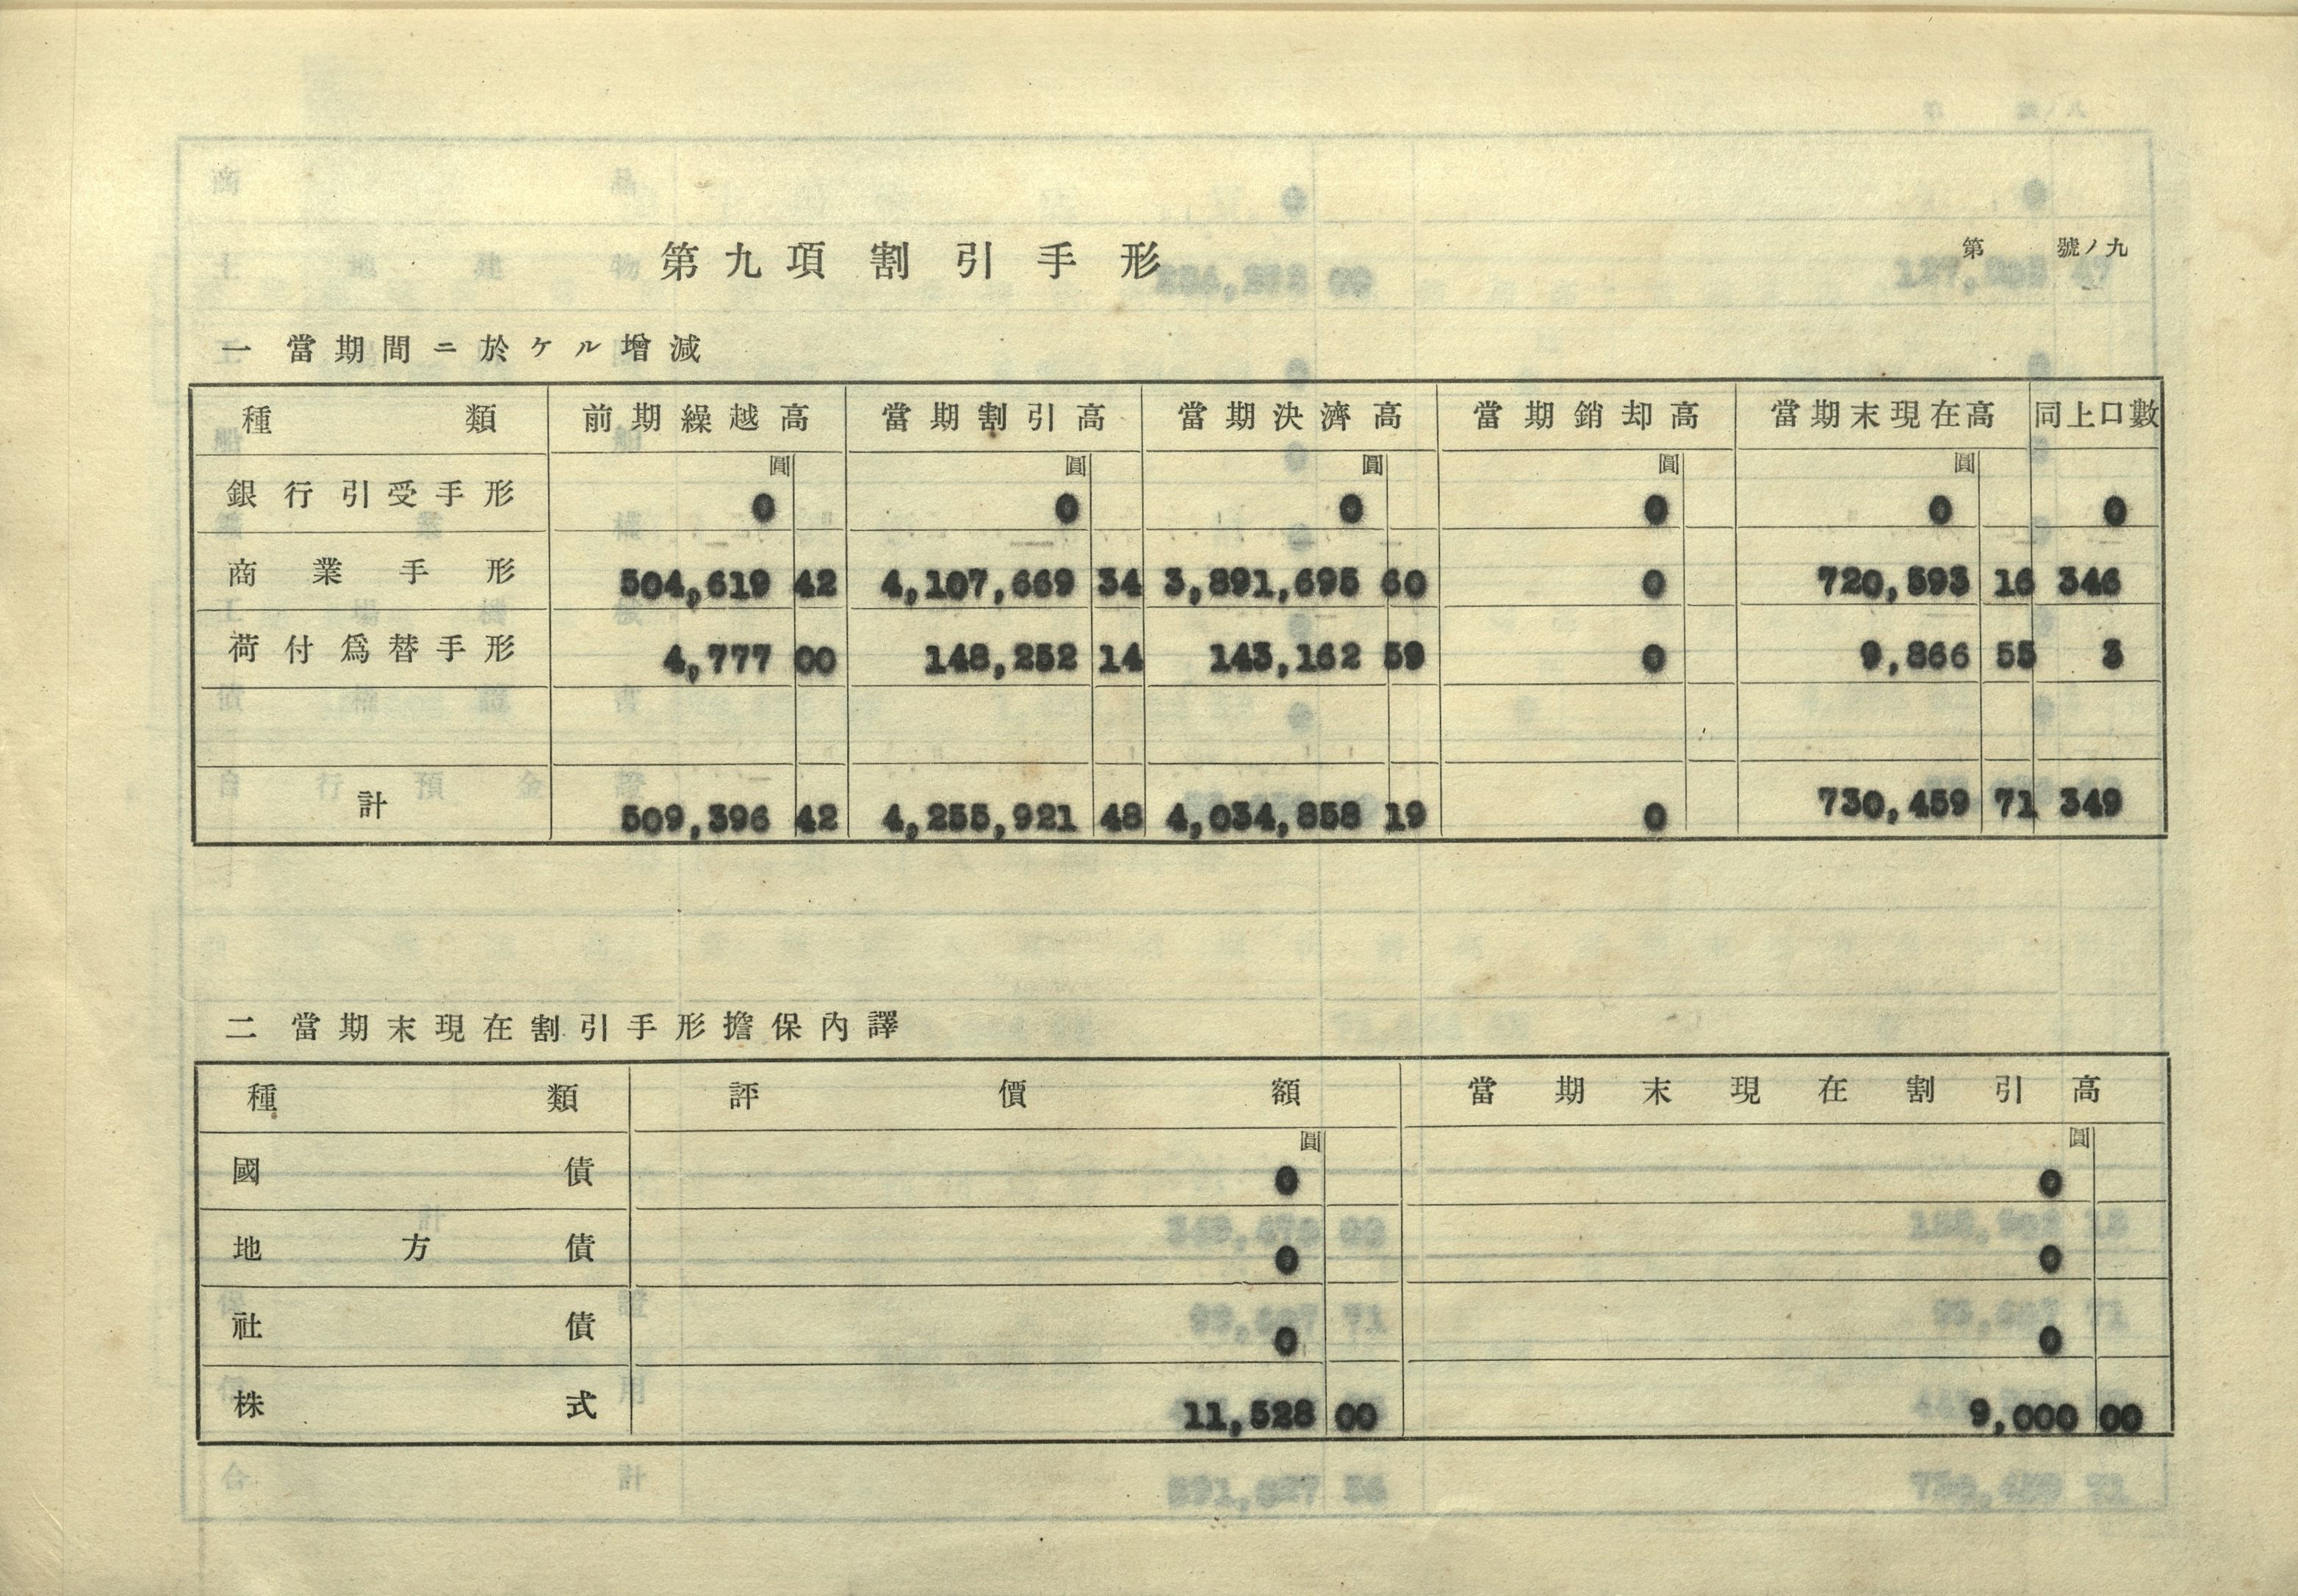 第九項 割引手形
第 號ノ九
一 當期間ニ於ケル增減
種類 前期繰越高 當期割引高 當期決濟高 當期銷却高 當期末現在高 同上口數
圓 圓 圓 圓 圓
銀行引受手形 0 0 0 0 0 0
商業手形 504,619 42 4,107,669 34 3,891,695 60 0 720,593 16 346
荷付爲替手形 4,777 00 148,252 14 143,162 59 0 9,866 55 3
計 509,396 42 4,255,921 48 4,034,858 19 0 730,459 71 349
二 當期末現在割引手形擔保內譯
種類 評價額 當期末現在割引高
圓 圓
國債 0 0
地方債 0 0
社債 0 0
株式 11,528 00 9,000 00